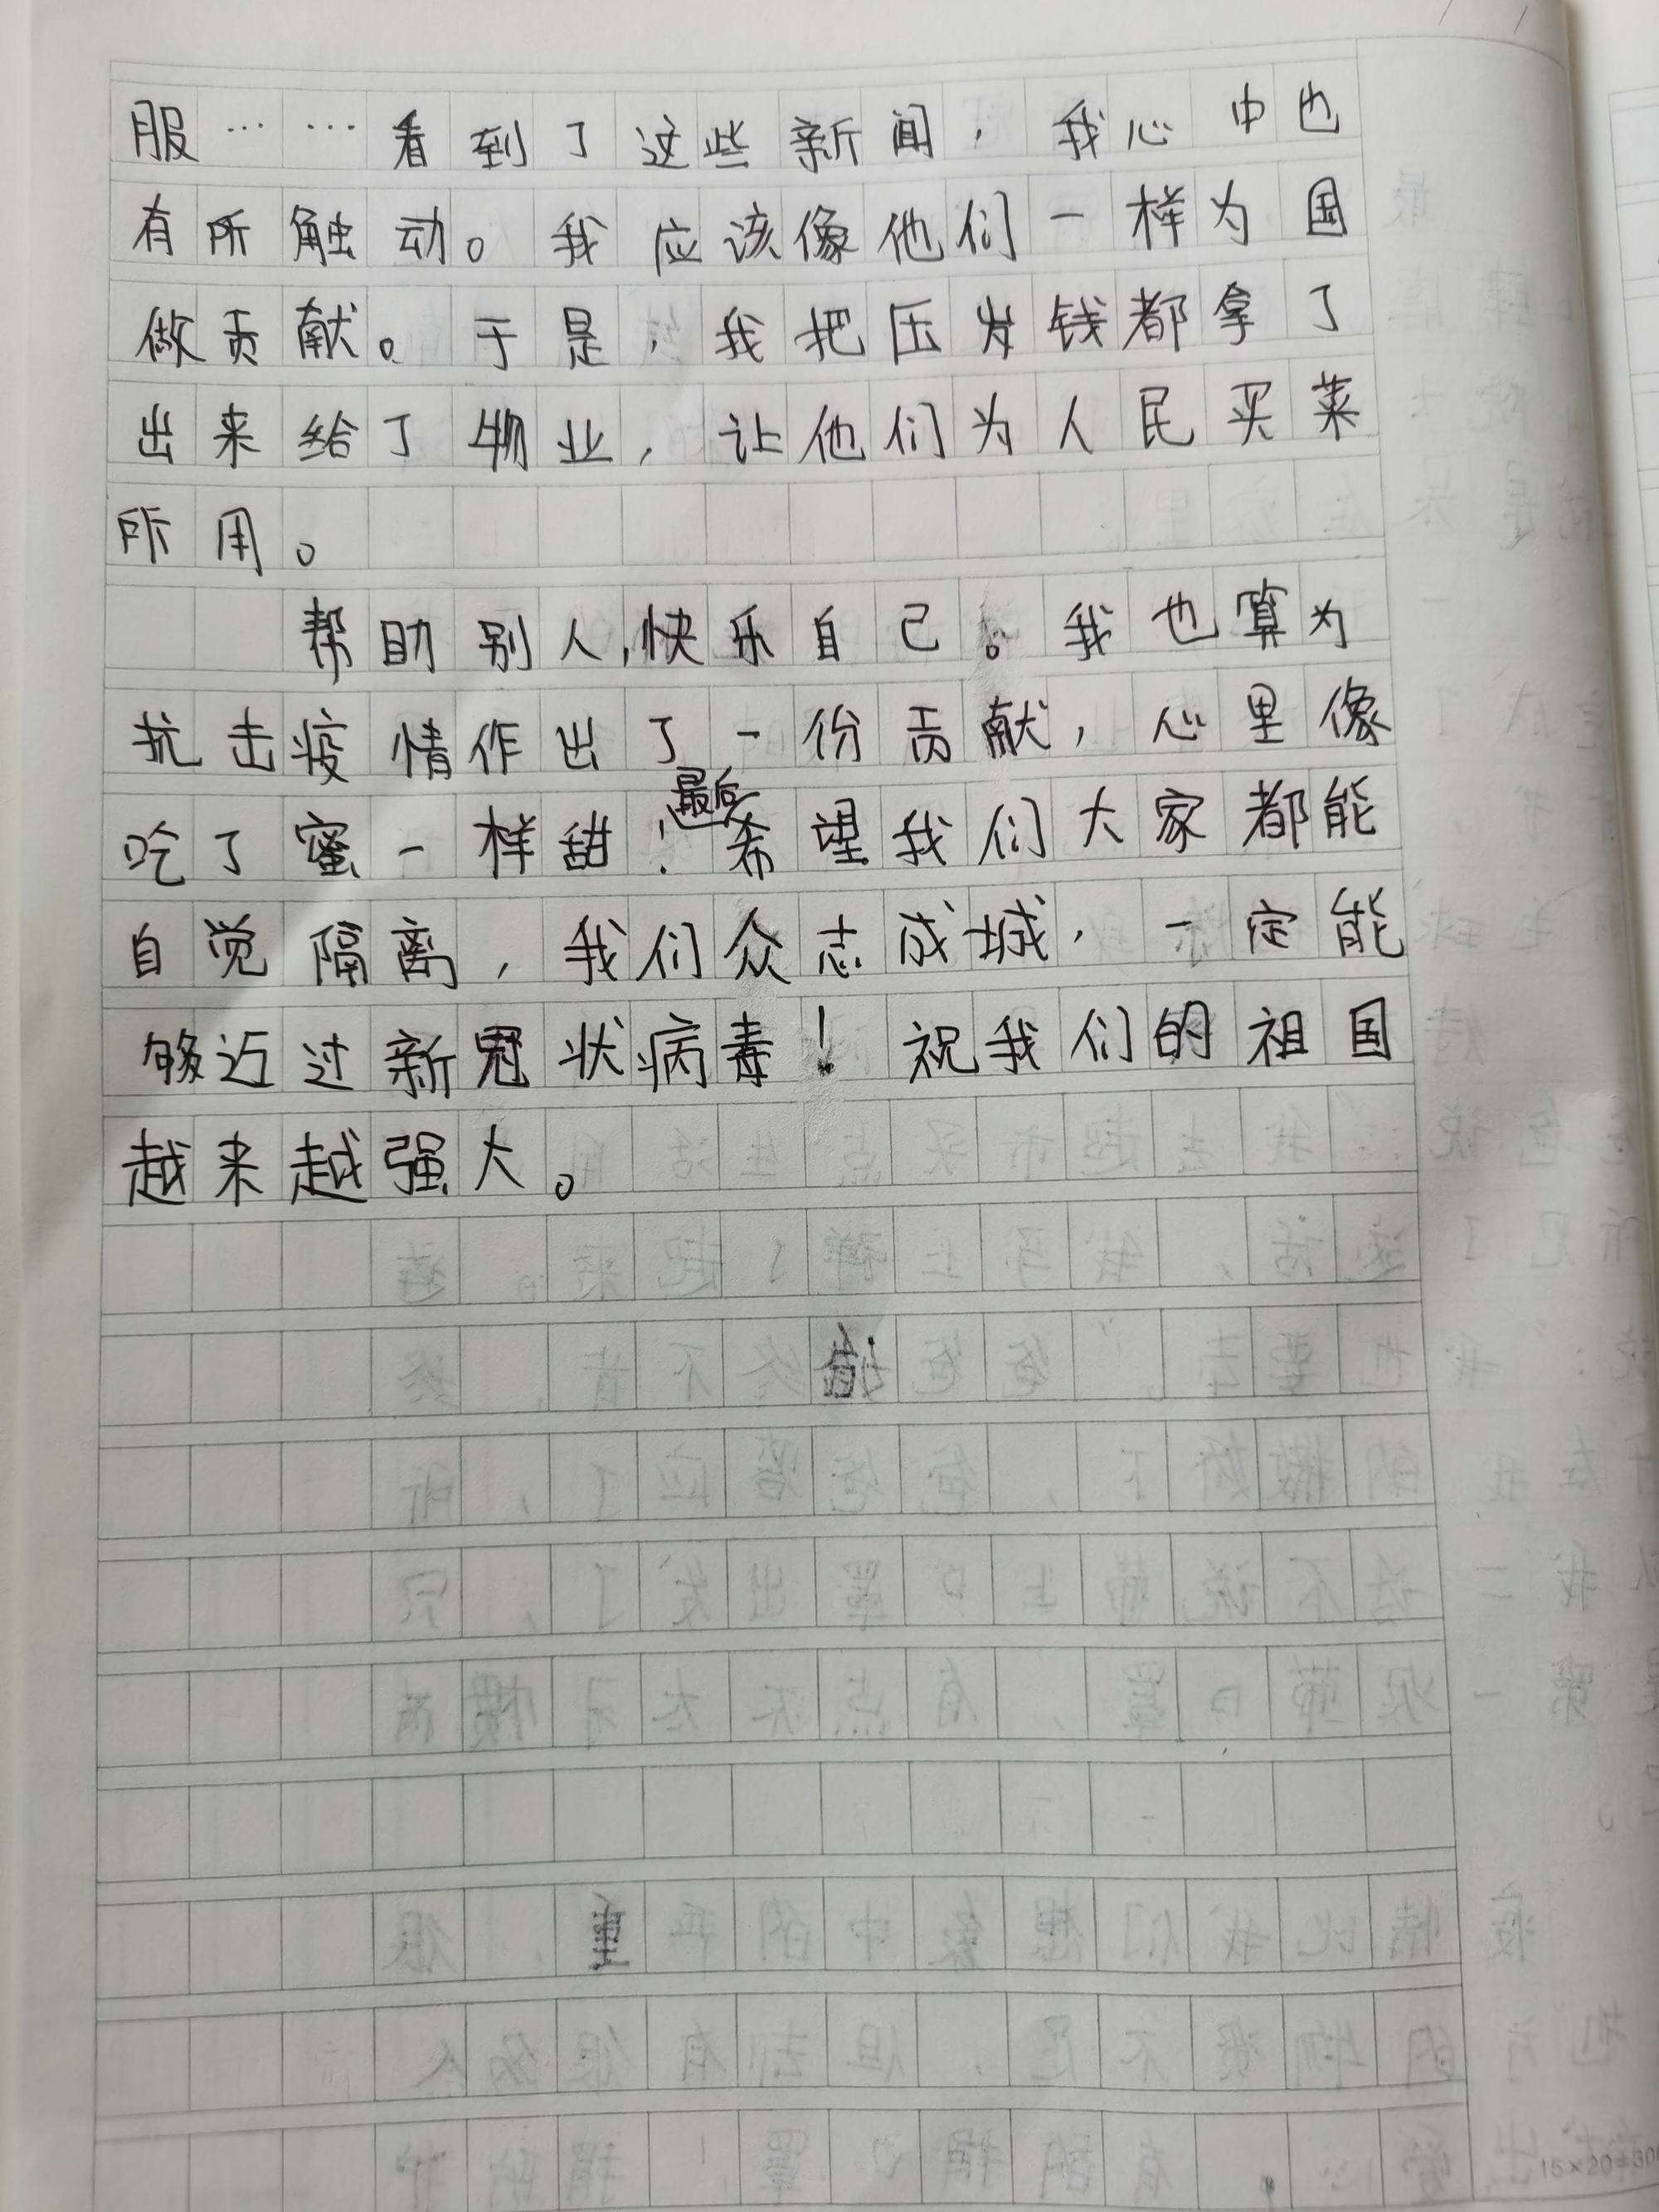 服……看到了这些新闻，我心中也
有所触动。我应该像他们一样为国
做贡献。于是，我把压岁钱都拿了
出来给了物业，让他们为人民买菜
所用。
帮助别人，快乐自己。我也算为
抗击疫情作出了一份贡献，心里像
吃了蜜一样甜！最后希望我们大家都能
自觉隔离，我们众志成城，一定能
够迈过新冠状病毒！祝我们的祖国
越来越强大。
15×20=300